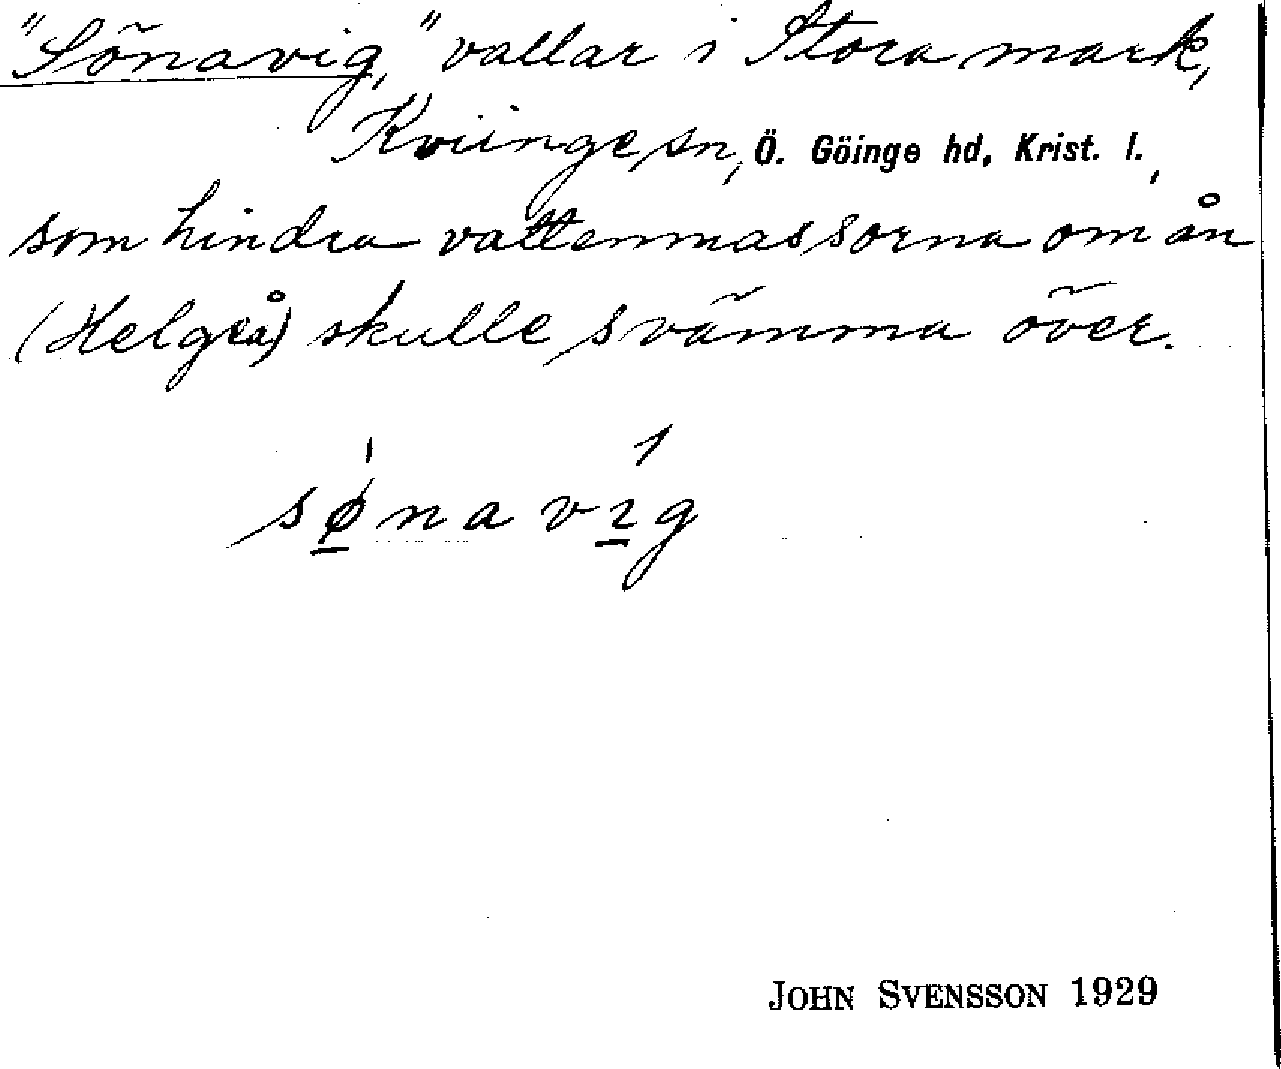 "Sönavig," vallar i Stora mark,
Kviinge sn, Ö. Göinge hd, Krist. l.,
som hindra vattenmassorna om ån
(Helgeå) skulle svämma över.
sø̱navı̱g
JOHN SVENSSON 1929